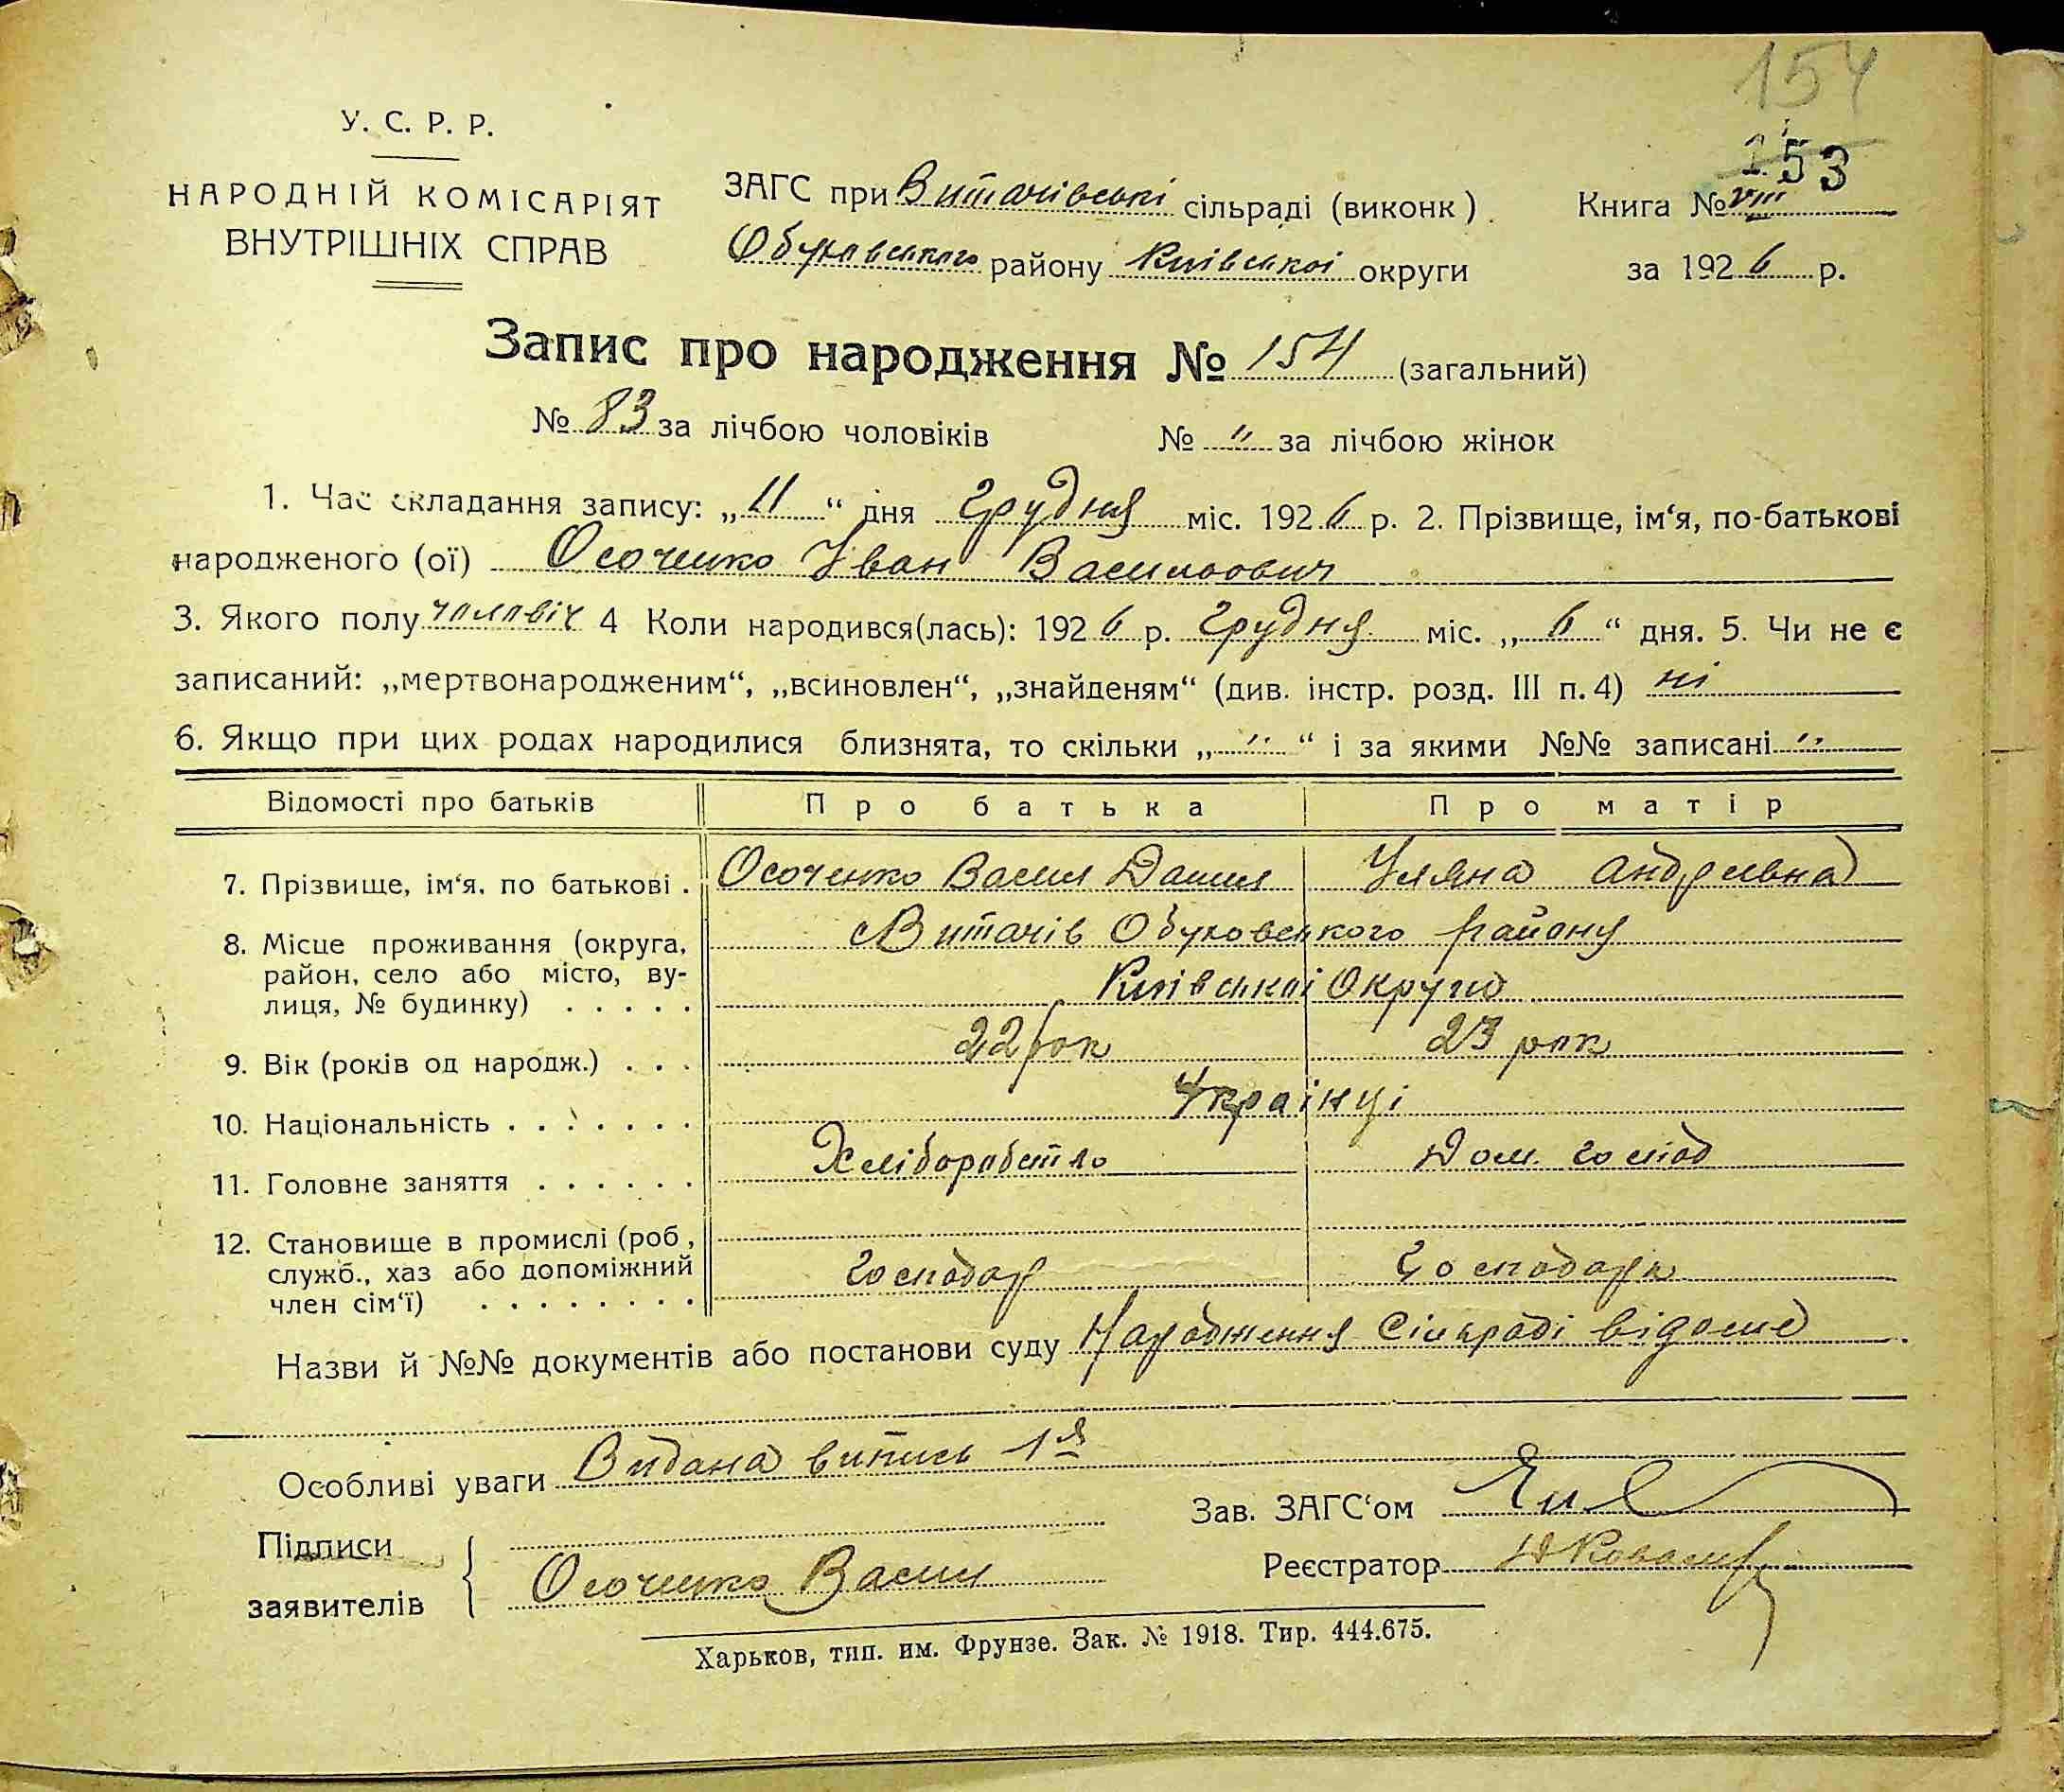 154
153
У. С. Р. Р.
НАРОДНІЙ КОМІСАРІЯТ
ВНУТРІШНІХ СПРАВ
ЗАГС при Витачівські сільраді (виконк)
Обуховського району Київської округи
Книга № VIII
за 1926 р.
Запис про народження № 154 (загальний)
№ 83 за лічбою чоловіків № " за лічбою жінок
1. Час складання запису: „11“ дня Грудня міс. 1926 р. 2. Прізвище, ім‘я, по-батькові
народженого (ої) Осоченко Іван Васильович
3. Якого полу чоловіч 4 Коли народився(лась): 1926 р. Грудня міс. „6“ дня. 5. Чи не є
записаний: „мертвонародженим“, „всиновлен“, „знайденям“ (див. інстр. розд. III п. 4) ні
6. Якщо при цих родах народилися близнята, то скільки „ " “ і за якими №№ записані "
Відомості про батьків Про батька Про матір
7. Прізвище, ім‘я, по батькові . Осоченко Васил Данил Уляна Андреівна
8. Місце проживання (округа,
район, село або місто, ву-
лиця, № будинку) . . . . .
Витачів Обуховського району
Київської Округи
9. Вік (років од народж.) . . . 22 рок 23 рок
10. Національність . . . . . . . Українці
11. Головне заняття . . . . . . Хліборобство Дом. господ
12. Становище в промислі (роб,
служб., хаз або допоміжний
член сім‘ї) . . . . . . . .
господар Господарк
Назви й №№ документів або постанови суду Народження Сільраді відоме
Особливі уваги Видана випись 1я
Зав. ЗАГС‘ом
Підписи
заявителів
Осоченко Васил
Реєстратор
Харьков, тип. им. Фрунзе. Зак. № 1918. Тир. 444.675.